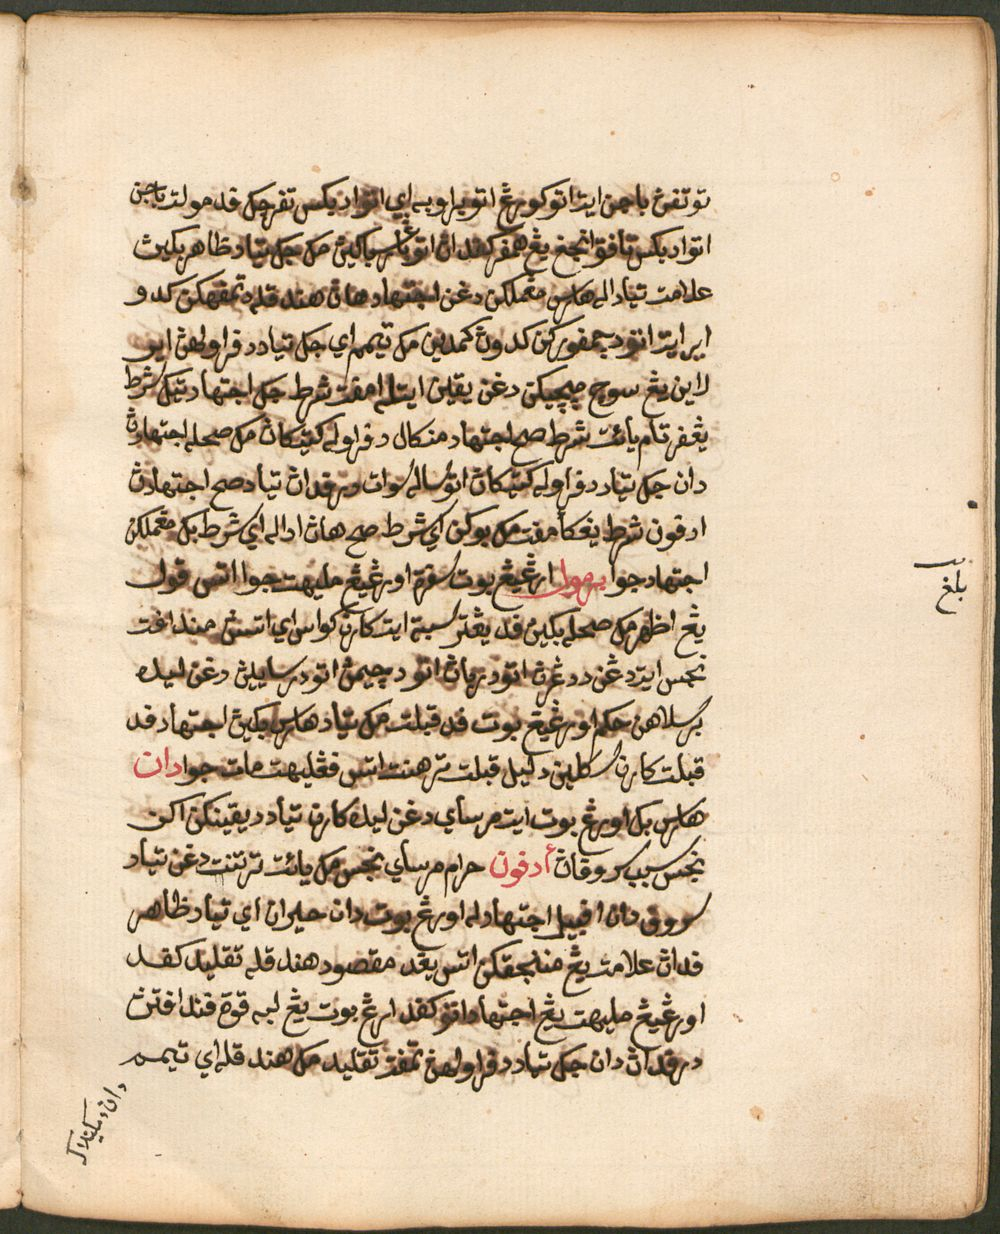 توتفن باجن ايت اتو كورڠ اتو براوبه اي اتو اد بكس تفرچك فد مولت باجن
اتو اد بكس تافق انجڠ يڠ همفر كفدان اتو ... باݢين مك جك تياد ظاهر بݢيڽ
علامت تياداله هارس مڠملكن دڠن اجتهاد هاڽ هندقله دتمفهكن كدو
اير ايت اتو دچمفوركن كدواڽ كمدين مك تيمم اي جك تياد دفراوليهڽ اير
لاين يڠ سوچ مڽوچيكن دڠن يقين ايتله امفت شرط جك اجتهاد تيݢ شرط
يڠفرتام يائت شرط صح اجتهاد مناكال دفراوله كتيݢاڽ مك صحله اجتهادڽ
دان جك تياد دفراوله كتيݢاڽ اتو ساله سوات درفداڽ تياد صح اجتهادڽ
ادفون شرط يڠكأمفت مك بوكن اي شرط صح هاڽ اداله اي شرط بݢ مڠملكن
اجتهاد جوا برمول ارڠيڠ بوت سفرة اورڠيڠ مليهت جوا اتس قول
يڠ اظهر مك صحله بݢيڽ فد يڠترسبة ايت كارن كواس اي اتسڽ منداڤت
نجس ايت دڠن ددڠرڽ اتو درباڽ اتو دچيمڽ اتو درساييڽ دڠن ليده
برسلاهن حكم اورڠيڠ بوت فد قبلت مك تياد هارس بݢيڽ اجتهاد فد
قبلت كارن سݢلين دليل قبلت ترهنت اتس فڠليهت مات جوا دان
هارس بݢ اورڠ بوت ايت مرساي دڠن ليده كارن تياد ديقينكن اكن
نجس سبب كروقان أدفون حرام مرساي نجس مك يائت ترتنت دڠن تياد
كروق دان افبيل اجتهادله اورڠ بوت دان حيران اي تياد ظاهر
فداڽ علامت يڠ منونجقكن اتس يڠد مقصود هندقله تقليد كفد
اورڠيڠ مليهت يڠ اجتهاد اتو كفد ارڠ بوت يڠ لبه قوة فندافتڽ
درفداڽ دان جك تياد دفراوليهڽ تمفت تقليد مك هندقله اي تيمم
دان دميكينله
بلغ